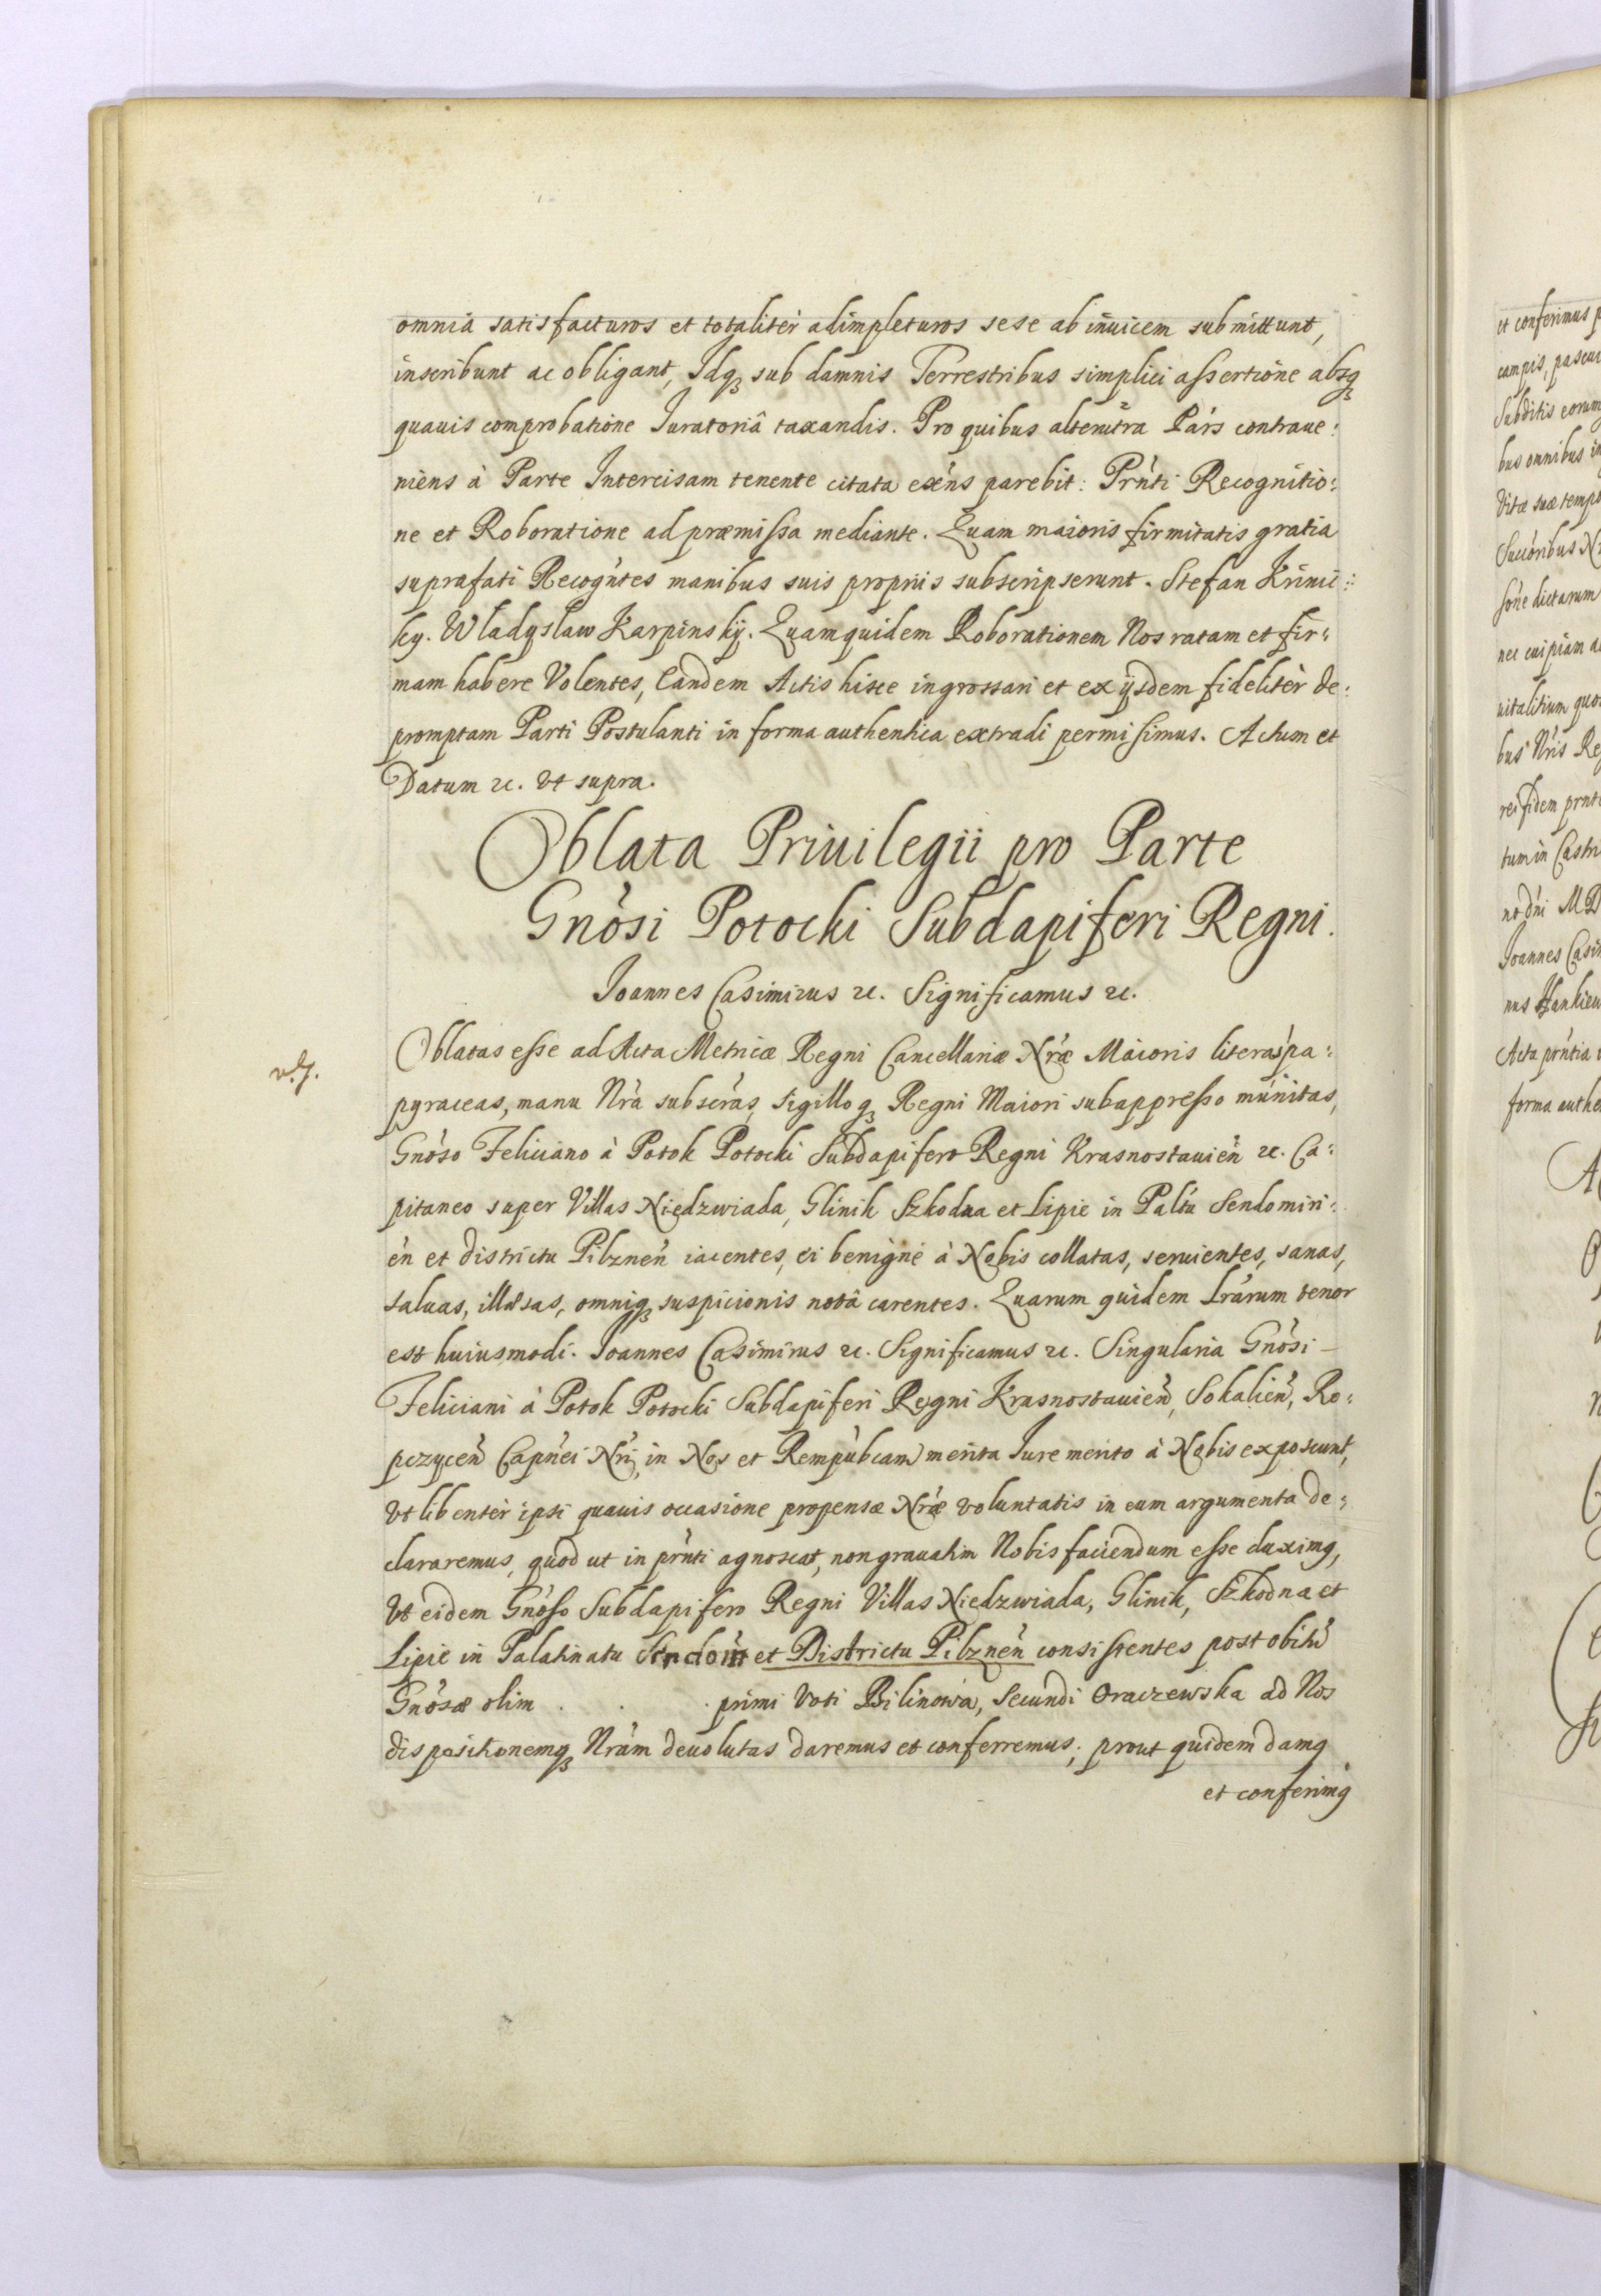 omnia satisfacturos et totaliter adimpleturos sese ab inuicem submittunt,
inscribunt ac obligant, Idq3 sub damnis Terrestribus simplici assertione absq3
quauis comprobatione Iuratoriâ taxandis. Pro quibus alterutra Pars contraue:
niens à Parte Intercisam tenente citata exe̅ns parebit: Prn̅ti Recognitio:
ne et Roboratione ad præmissa mediante. Quam maioris firmitatis gratia
suprafati Recogn̅tes manibus suis proprijs subscripserunt. Stefan
Władysław Karpinskij. Quamquidem Roborationem Nos ratam et fir:
mam habere Volentes, Eandem Actis hisce ingrossari et ex ijsdem fideliter de:
promptam Parti Postulanti in forma authentica extradi permisimus. Actum et
Datum etc. Vt supra.
Oblata Priuilegii pro Parte
Gnòsi Potocki Subdapiferi Regni.
Joannes Casimirus etc. Significamus etc.
Oblatas esse ad Acta Metricæ Regni Cancellariæ Nræ Maioris literas pa:
pyraceas, manu Nrà subscràs, sigilloq3 Regni Maiori subappresso munitas,
Gnòso Feliciano à Potok Potocki Subdapifero Regni Krasnostauień etc. Ca:
pitaneo super Villas Niedzwiada, Glinik Szkodna et Lipie in Paltu Sendomiri:
eń et districtu Pilzneń iacentes, ei benignè à Nobis collatas, seruientes, sanas,
saluas, illæsas, omniq3 suspicionis notâ carentes. Quarum quidem Lràrum tenor
est huiusmodi. Joannes Casimirus etc. Significamus etc. Singularia Gnòsi
Feliciani à Potok Potocki Subdapiferi Regni Krasnostauień, Sokalień, Ro:
pczyceń Capn̅ei Nri, in Nos et Rempùbcam merita Iure merito à Nobis exposcunt,
Vt libentèr ipsi quauis occasione propensæ Nræ voluntatis in eum argumenta de:
clararemus, quod ut in prn̅ti agnoscat, non grauatim Nobis faciendum esse duximq,
Vt eidem Gnòso Subdapifero Regni Villas Niedzwiada, Glinik, Szkodna et
Lipie in Palatinatu Sendom̅ et Districtu Pilzneń consistentes post obitũ
Gnòsæ olim . . . primi Voti Bilinowa, Secundi Oraczewska ad Nos
dispositionemq3 Nràm deuolutas daremus et conferremus, prout quidem damq
et conferimq
et conferimus
campis, pascu
Subditis eorum
bus omnibus in
Vitæ suæ tempo
dictarum
nec cuipiam a
bus Nris Re
rei fidem prnt
tum in Castr
no dni MD
Joannes Casi
Acta prntia
forma authe